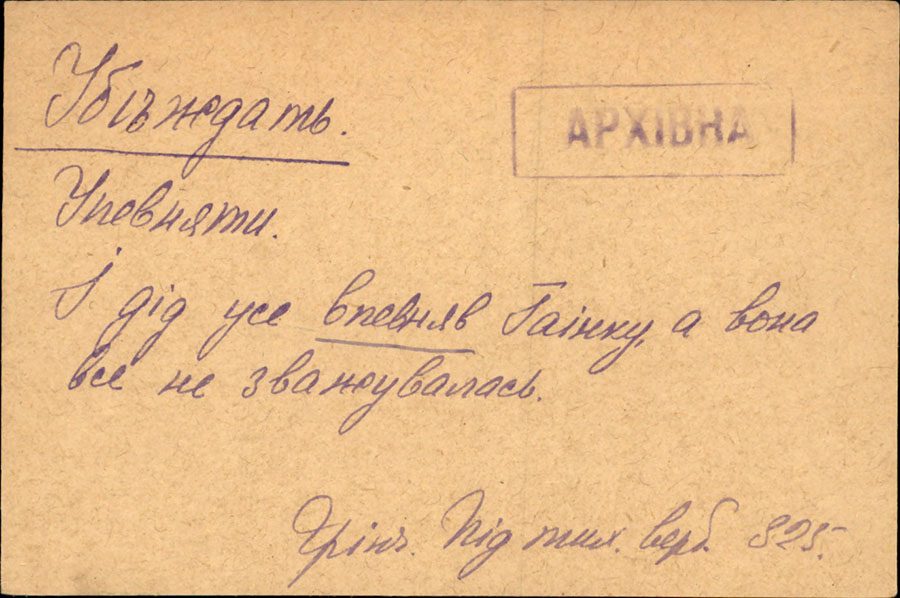 Убѣждать.
АРХІВНА
Упевняти.
І дід усе впевняв Гаінку, а вона
все не зважувалась.
Грінч. Під тих. верб. 325.